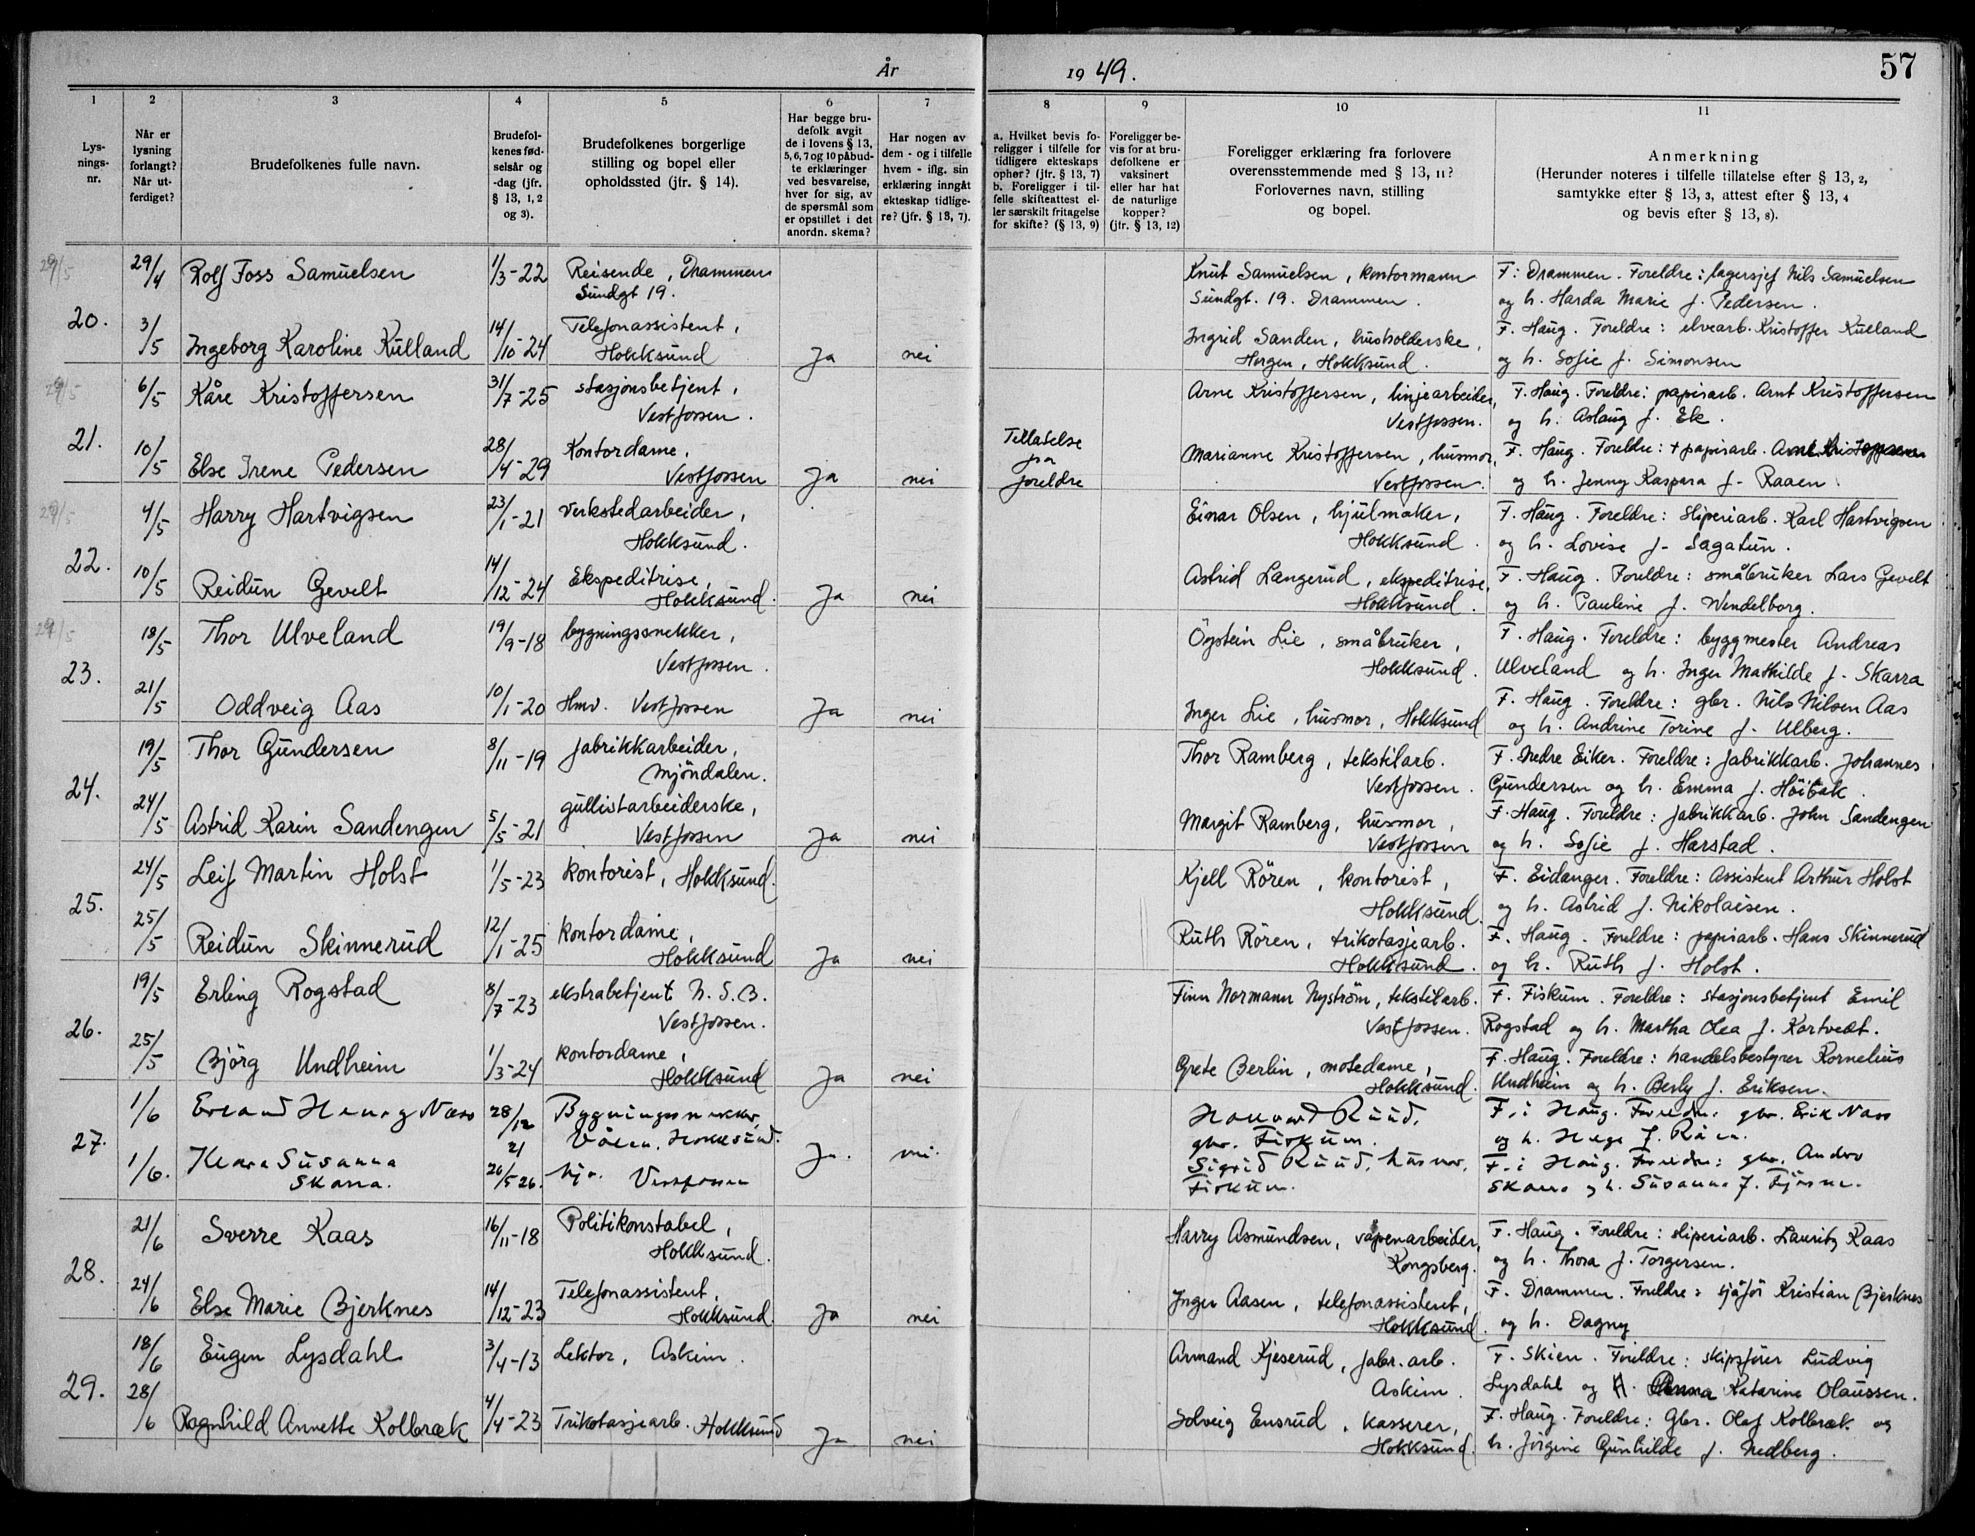 År 1949.
57
1 2 3 4 5 6 7 8 9 10 11
Lys-
nings-
nr.
Når er
lysning
forlangt?
Når ut-
ferdiget?
Brudefolkenes fulle navn.
Brudefol-
kenes fød-
selsår og
-dag (jfr.
§ 13, 1, 2
og 3).
Brudefolkenes borgerlige
stilling og bopel eller
opholdssted (jfr. § 14).
Har begge bru-
defolk avgit
de i lovens § 13,
5, 6, 7 og 10 påbud-
te erklæringer
ved besvarelse,
hver for sig, av
de spørsmål som
er opstillet i det
anordn. skema?
Har nogen av
dem - og i tilfelle
hvem - iflg. sin
erklæring inngått
ekteskap tidlige-
re? (jfr. § 13, 7).
a. Hvilket bevis fo-
religger i tilfelle for
tidligere ekteskaps
ophør? (jfr. § 13, 7)
b. Foreligger i til-
felle skifteattest el-
ler særskilt fritagelse
for skifte? (§ 13, 9)
Foreligger be-
vis for at bru-
defolkene er
vaksinert
eller har hat
de naturlige
kopper?
(jfr. § 13, 12)
Foreligger erklæring fra forlovere
overensstemmende med § 13, 11?
Forlovernes navn, stilling
og bopel.
Anmerkning
(Herunder noteres i tilfelle tillatelse efter § 13, 2,
samtykke efter § 13, 3, attest efter § 13, 4
og bevis efter § 13, 8).
29/5
20.
29/4 Rolf Foss Samuelsen 1/3-22 Reisende, Drammen
Sundgt 19.
Knut Samuelsen, kontormann
Sundgt. 19. Drammen.
F: Drammen. Foreldre: lagersjef Nils Samuelsen
og h. Harda Marie f. Pedersen.
3/5 Ingeborg Karoline Kulland 14/10-24 Telefonassistent,
Hokksund Ja nei
Ingrid Sanden, husholderske,
Horgen, Hokksund.
F. Haug. Foreldre: elvearb. Kristoffer Kulland
og h. Sofie f. Simonsen
29/5
21.
6/5 Kåre Kristoffersen 31/7-25 stasjonsbetjent,
Vestfossen.
Arne Kristoffersen, linjearbeider,
Vestfossen.
F. Haug. Foreldre: papirarb. Arnt Kristoffersen
og h. Aslaug f. Ek.
10/5 Else Irene Pedersen 28/4-29 Kontordame,
Vestfossen Ja nei
Tillatelse
fra
foreldre
Marianne Kristoffersen, husmor,
Vestfossen.
F. Haug. Foreldre: + papirarb.
og h. Jenny Kaspara f. Raaen
29/5
22.
4/5 Harry Hartvigsen 23/1-21 verkstedarbeider,
Hokksund.
Einar Olsen, hjulmaker,
Hokksund.
F. Haug. Foreldre: sliperiarb. Karl Hartvigsen
og h. Lovise f. Sagatun.
10/5 Reidun Gevelt 14/12-24 Ekspeditrise,
Hokksund. Ja nei
Astrid Langerud, ekspeditrise,
Hokksund.
F. Haug. Foreldre: småbruker Lars Gevelt
og h. Pauline f. Wendelborg.
29/5
23.
18/5 Thor Ulveland 19/9-18 bygningssnekker,
Vestfossen.
Öystein Lie, småbruker,
Hokksund.
F. Haug. Foreldre: byggmester Andreas
Ulveland og h. Inger Mathilde f. Skarra
21/5 Oddveig Aas 10/1-20 Hmv. Vestfossen Ja nei
Inger Lie, husmor, Hokksund
F. Haug. Foreldre: gbr. Nils Nilsen Aas
og h. Andrine Torine f. Ulberg.
24.
19/5 Thor Gundersen 8/11-19 fabrikkarbeider,
Mjöndalen.
Thor Ramberg, tekstilarb.
Vestfossen.
F. Nedre Eiker. Foreldre: fabrikkarb. Johannes
Gundersen og h. Emma f. Höibak.
24/5 Astrid Karin Sandengen 5/5-21 gullistarbeiderske,
Vestfossen Ja nei
Margit Ramberg, husmor,
Vestfossen
F. Haug. Foreldre: fabrikkarb. John Sandengen
og h. Sofie f. Harstad.
25.
24/5 Leif Martin Holst 1/5-23 kontorist, Hokksund.
Kjell Rören, kontorist,
Hokksund.
F. Eidanger. Foreldre: Assistent Arthur Holst
og h. Astrid f. Nikolaisen.
25/5 Reidun Skinnerud 12/1-25 kontordame,
Hokksund Ja nei
Ruth Rören, trikotasjearb.
Hokksund.
F. Haug. Foreldre: papirarb. Hans Skinnerud
og h. Ruth f. Holst.
26.
19/5 Erling Rogstad 8/7-23 ekstrabetjent N.S.B.
Vestfossen.
Finn Normann Nyström, tekstilarb.
Vestfossen.
F. Fiskum. Foreldre: stasjonsbetjent Emil
Rogstad og h. Martha Olea f. Kortvedt.
25/5 Björg Undheim 1/3-24 kontordame,
Hokksund Ja nei
Grete Berlin, motedame,
Hokksund.
F. Haug. Foreldre: handelsbestyrer Kornelius
Undheim og h. Berly f. Eriksen.
27.
1/6 Erland Næss 28/12 21 Bygningssnekker,
Hokksund.
Ruud,
gbr. Fiskum.
F. i Haug. Foreldre: gbr. Erik Næss
og h. Hega f. Råen.
1/6. Klara Susanna
Skarra. 26/5 26. hjv. Vestfossen Ja. nei.
Sigrid Ruud, husmor,
Fiskum.
F. i Haug. Foreldre: gbr.
Skarra og h. Susanna f.
28.
21/6 Sverre Kaas 16/11-18 Politikonstabel,
Hokksund.
Harry Asmundsen, våpenarbeider,
Kongsberg.
F. Haug. Foreldre: sliperiarb. Lauritz Kaas
og h. Thora f. Torgersen.
24/6 Else Marie Bjerknes 14/12-23 Telefonassistent,
Hokksund. Ja nei
Inger Aasen, telefonassistent,
Hokksund.
F. Drammen. Foreldre: sjåför Kristian Bjerknes
og h. Dagny
29.
18/6 Eugen Lysdahl 3/4-13 Lektor, Askim.
Armand Kjeserud, fabr. arb.
Askim.
F. Skien. Foreldre: skipsfører Ludvig
Lysdahl og H. Anna Katarine Olaussen.
28/6 Ragnhild Annette Kolbræk 4/4-23 Trikotasjearb. Hokksund Ja nei
Solveig Ensrud, kasserer,
Hokksund.
F. Haug. Foreldre: Gbr. Olaf Kolbræk og
h. Jörgine Gunhilde f. Nedberg.